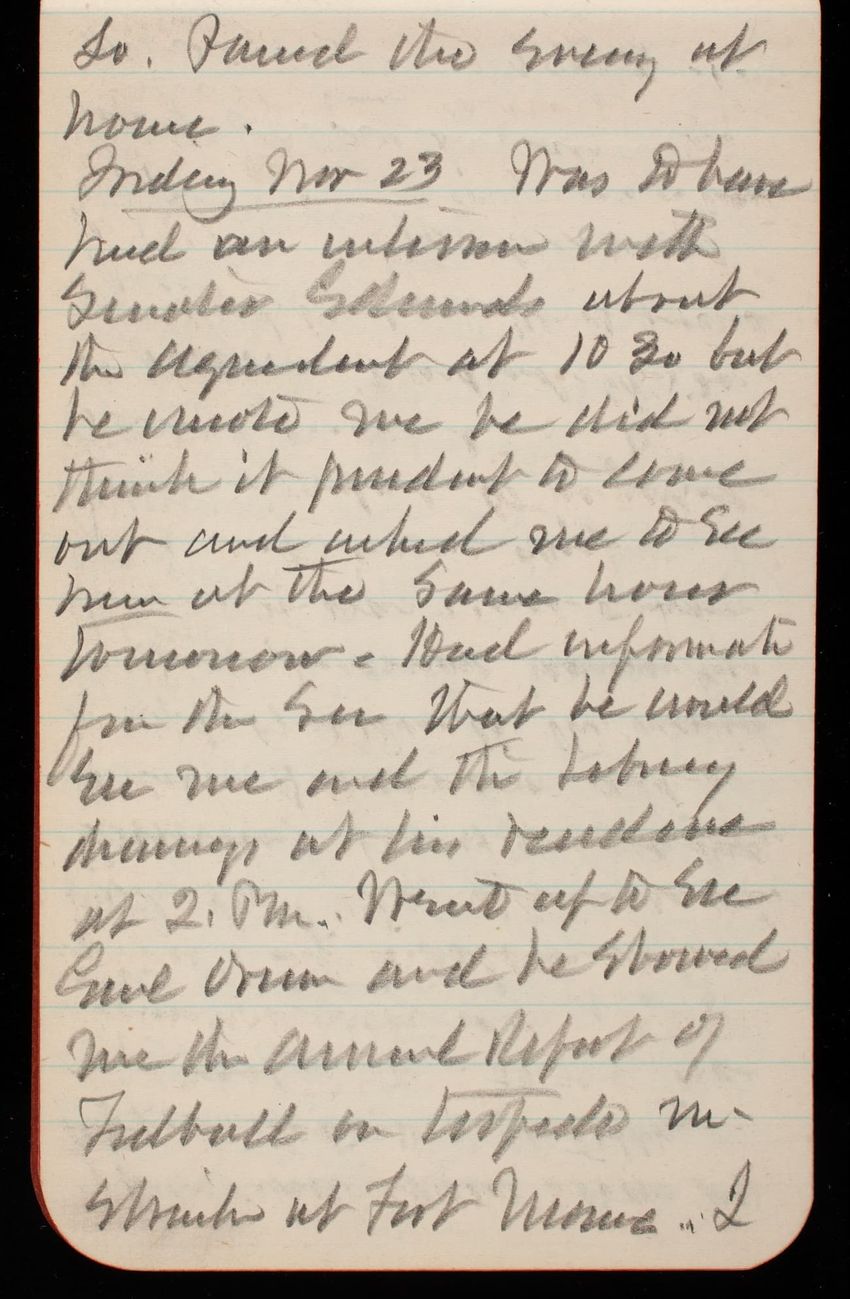 so. Passed the evening at
home.
Friday Nov 23 Was to have
had an interview with
Senator Edmunds about
the aqueduct at 10 30 but
he wrote me he did not
think it prudent to come
out and asked me to see
him at the same hour
tomorrow. Had informati
from the Sec that he would
see me and the Library
drawings at his residence
at 2. P.m. Went up to see
Genl Drum and he showed
me the annual Report of
on torpedo in-
at Fort Monroe. I